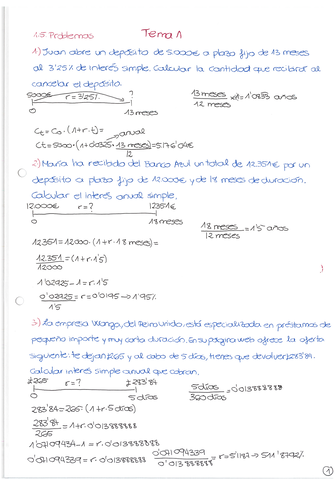 1.5 Problemas Tema 1
1) Juan abre un depósito de 5000€ a plazo fijo de 13 meses
al 3'25% de interés simple. Calcular la cantidad que recibirá al
cancelar el depósito.
5000€ r=3'25% ?
0 13 meses
13 meses
12 meses
Ct = C0 · (1+r·t) =
anual
Ct = 5000 · (1+0'0325 · 13 meses) = 5176'04€
12
2) María ha recibido del Banco Azul un total de 12351€ por un
depósito a plazo fijo de 12.000€ y de 18 meses de duración.
Calcular el interés anual simple.
12.000€ r=? 12351€
0 18 meses
18 meses = 1'5 años
12 meses
12351 = 12000 · (1+r·18 meses) =
12351 = (1+r·1'5)
12000
1'02925 - 1 = r·1'5
0'02925 = r = 0'0195 → 1'95%
1'5
3) La empresa Wonga, del Reino Unido, está especializada en préstamos de
pequeño importe y muy corta duración. En su página web ofrece la oferta
siguiente: te dejan £265 y al cabo de 5 días, tienes que devolver £283'84.
Calcular interés simple anual que cobran.
£265 r=? £283'84
0 5 días
5 días = 0'013888888
360 días
283'84 = 265 (1+r·5 días)
283'84 = 1+r·0'013888888
265
1'071094339 - 1 = r·0'013888888
0'071094339 = r·0'013888888
0'071094339 = r = 5'1187 → 511'8792%
0'013888888
1